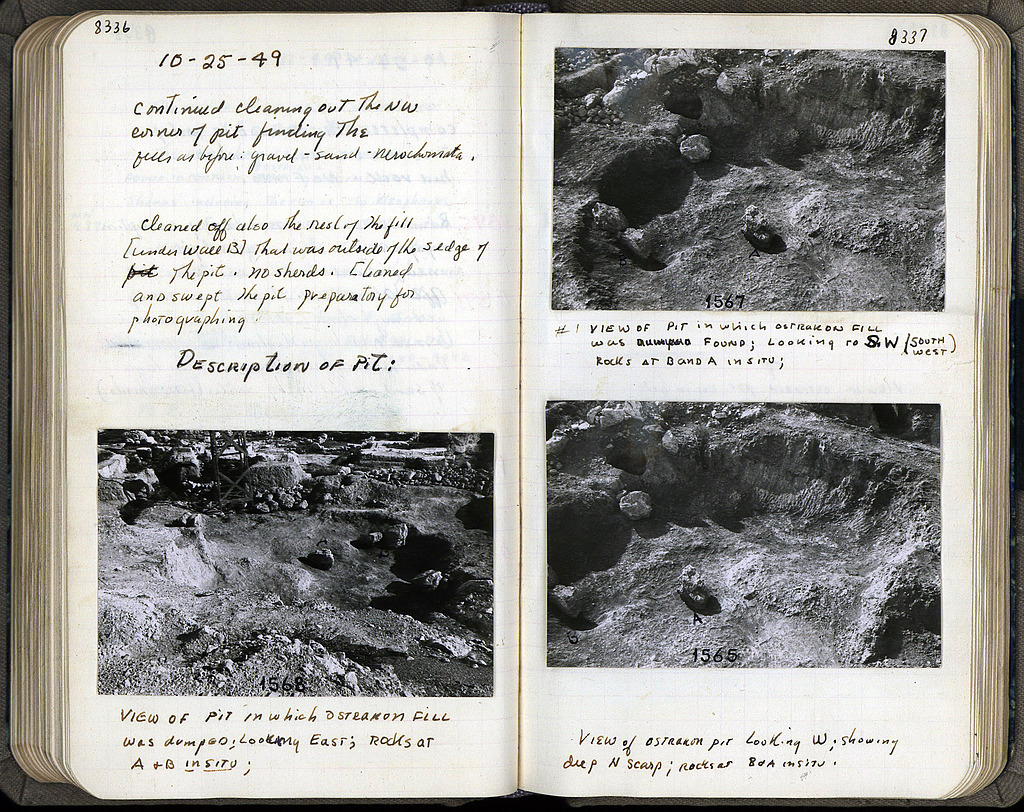 8336
10-25-49
continued cleaning out the NW
corner of pit finding the
fills as before: gravel - sand - nerochomata.
Cleaned off also the rest of the fill
[under Wall B] that was outside of the S edge of
pit The pit. No sherds. Cleaned
and swept the pit preparatory for
photographing.
DESCRIPTION OF PIT:
1568
VIEW OF PIT IN WHICH OSTRAKON FILL
WAS DUMPED; LOOKING EAST; ROCKS AT
A + B IN SITU;
8337
A
B
1567
#1 VIEW OF PIT IN WHICH OSTRAKON FILL
WAS FOUND; LOOKING TO SW (SOUTH
WEST)
ROCKS AT B AND A IN SITU;
A
B
1565
VIEW OF OSTRAKON PIT LOOKING W; SHOWING
deep N SCARP; ROCKS AT B & A IN SITU.